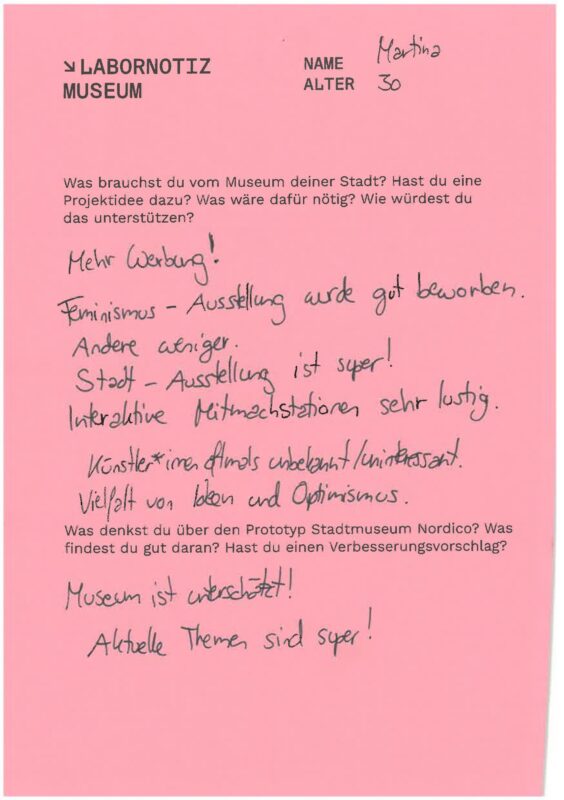 ↘ LABORNOTIZ
MUSEUM
NAME Martina
ALTER 30
Was brauchst du vom Museum deiner Stadt? Hast du eine
Projektidee dazu? Was wäre dafür nötig? Wie würdest du
das unterstützen?
Mehr Werbung!
Feminismus – Ausstellung wurde gut beworben.
Andere weniger.
Stadt – Ausstellung ist super!
Interaktive Mitmachstationen sehr lustig.
Künstler*innen oftmals unbekannt/uninteressant.
Vielfalt von Ideen und Optimismus.
Was denkst du über den Prototyp Stadtmuseum Nordico? Was
findest du gut daran? Hast du einen Verbesserungsvorschlag?
Museum ist unterschätzt!
Aktuelle Themen sind super!